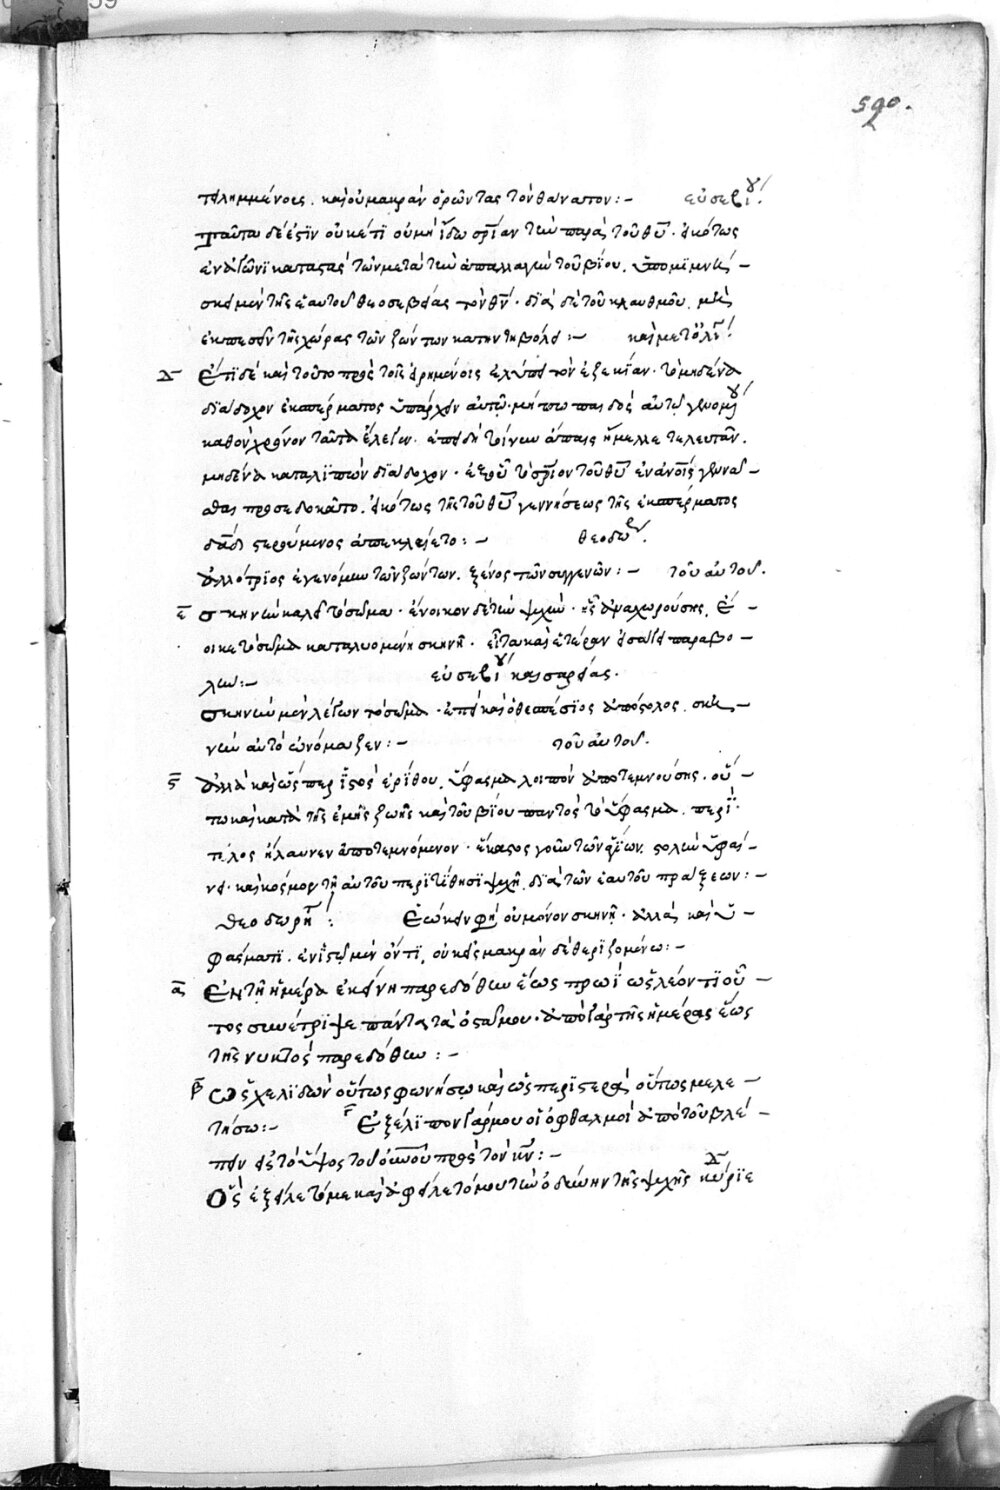 590.
πλημμένοις. καὶ οὐ μακρὰν ὁρῶντας τὸν θάνατον:- εὐσεβίου
ταῦτα δέ ἐστιν οὐκέτι οὐ μὴ ἴδω σρίαν τὴν παρὰ τοῦ θυ. εἰκότως
ἐν ἀγῶνι καταστὰς τῶν μετὰ τὴν ἀπαλλαγὴν τοῦ βίου. ὑπομιμνή-
σκει μὲν τῆς ἑαυτοῦ θεοσεβείας τὸν θν. διὰ δὲ τοῦ κλαυθμοῦ. μὴ
ἐκπεσεῖν τῆς χώρας τῶν ζώντων κατηντιβόλει:- καὶ μετ' ὀλίγα
δ Ἔτι δὲ καὶ τοῦτο πρὸς τοῖς εἰρημένοις ἐλύπει τὸν ἐζεκίαν. τὸ μηδένα
διάδοχον ἐκ σπέρματος ὑπάρχειν αὐτῷ. μήπω παιδὸς αὐτῷ γενομένου
καθ' ὃν χρόνον ταῦτα ἔλεγεν. ἐπειδὴ τοίνυν ἄπαις ἤμελλε τελευτᾶν.
μηδένα καταλιπὼν διάδοχον. ἐξ οὗ τὸ σριον τοῦ θυ ἐν ἀνοις γεννᾶ-
σθαι προσεδοκᾶτο. εἰκότως τῆς τοῦ θυ γεννήσεως τῆς ἐκ σπέρματος
δαδ στερούμενος ἀπεκλαίετο:- θεοδώρου.
ἀλλότριος ἐγενόμην τῶν ζώντων. ξένος τῶν συγγενῶν:- τοῦ αὐτοῦ.
ε σκηνὴν καλεῖ τὸ σῶμα. ἔνοικον δὲ τὴν ψυχήν. ἧς ἀναχωρούσης. ἔ-
οικε τὸ σῶμα καταλυομένη σκηνῇ. εἶτα καὶ ἑτέραν εἰσάγει παραβο-
λήν:- εὐσεβίου καισαρείας.
σκηνὴν μὲν λέγων τὸ σῶμα. ἐπεὶ καὶ ὁ θεσπέσιος ἀπόστολος. σκη-
νὴν αὐτὸ ὠνόμαξεν:- τοῦ αὐτοῦ.
ς ἀλλὰ καὶ ὥσπερ ἱστὸς ἐρίθου. ὕφασμα λοιπὸν ἀποτεμνούσης. οὕ-
τω καὶ κατὰ τῆς ἐμῆς ζωῆς καὶ τοῦ βίου παντὸς τὸ ὕφασμα. περὶ
τέλος ἤλαυνεν ἀποτεμνόμενον. ἕκαστος γοῦν τῶν ἁγίων. στολὴν ὑφαί-
νει. καὶ κόσμον τῇ αὐτοῦ περιτίθησι ψυχῇ. διὰ τῶν ἑαυτοῦ πράξεων:-
θεοδωρήτου: Ἐῴκειν φησὶ οὐ μόνον σκηνῇ. ἀλλὰ καὶ ὑ-
φάσματι. ἐν ἱστῷ μὲν ὄντι, οὐκ εἰς μακρὰν δὲ θεριζομένῳ:-
α Ἐν τῇ ἡμέρᾳ ἐκείνῃ παρεδόθην ἕως πρωῒ ὡς λέοντι οὕ-
τος συνέτριψε πάντα τὰ ὀστᾶ μου. ἀπὸ γὰρ τῆς ἡμέρας ἕως
τῆς νυκτὸς παρεδόθην:-
β Ὡς χελιδὼν οὕτως φωνήσω καὶ ὡς περιστερὰ οὕτως μελε-
τήσω:- γ Ἐξέλιπον γάρ μου οἱ ὀφθαλμοὶ ἀπὸ τοῦ βλέ-
πειν εἰς τὸ ὕψος τοῦ οὐνοῦ πρὸς τὸν κν:-
Ὃς ἐξείλετό με καὶ ἀφείλετό μου τὴν ὀδύνην τῆς ψυχῆς δ κύριε